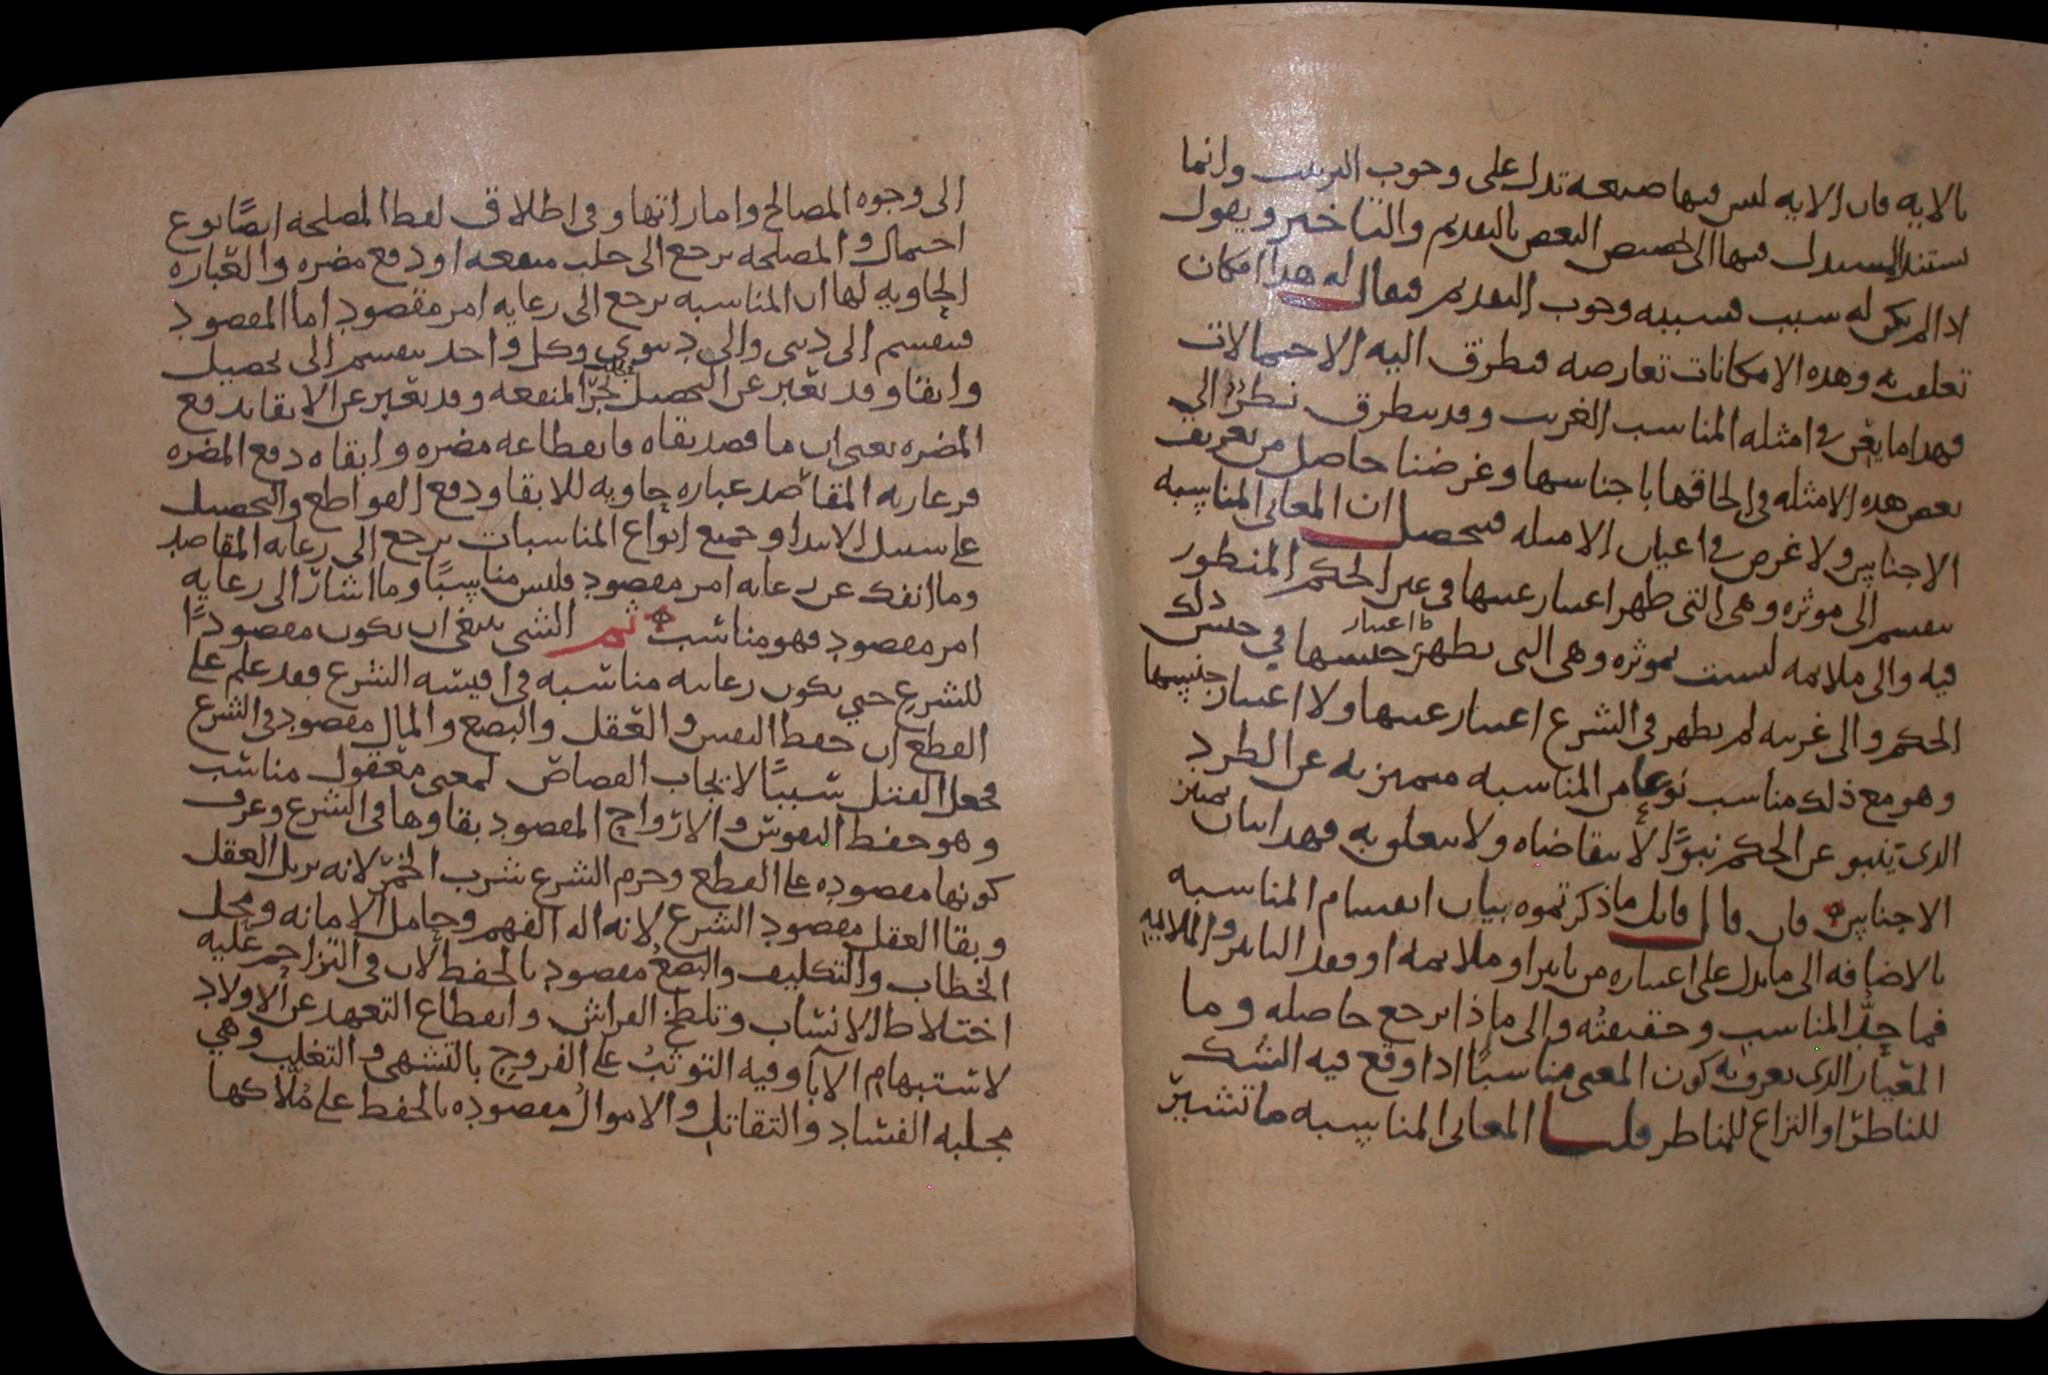 بالايه فان الايه ليس فيها صيغه تدل على وجوب الترتيب وانما
يستند المستدل فيها الى تخصيص البعض بالتقديم والتاخير ويقول
اذا لم يكن له سبب فسببه وجوب التقديم فيقال له هذا امكان
تعلقت به وهذه الامكانات تعارضه فتطرق اليه الاحتمالات
فهذا ما يقرب في امثله المناسب الغريب وقد يتطرق نظر الى
بعض هذه الامثله في الحاقها باجناسها وغرضنا حاصل من تعريف
الاجناس ولا غرض في اعيان الامثله فتحصل ان المعاني المناسبه
تنقسم الى موثره وهي التي ظهر اعتبار عينها في عين الحكم المنظور
فيه والى ملايمه ليست بموثره وهي التي يظهر اعتبار جنسها في جنس ذلك
الحكم والى غريبه لم يظهر في الشرع اعتبار عينها ولا اعتبار جنسها
وهو مع ذلك مناسب نوعا من المناسبه متميز به عن الطرد
الذي ينبو عن الحكم نبوًا لا يتقاضاه ولا يتعلق به فهذا بيان تميز
الاجناس فان قال قايل ما ذكرتموه بيان انقسام المناسبه
بالاضافه الى ما يدل على اعتباره من تاثير او ملايمه او فقد التاثير والملايمه
فما حدُّ المناسب وحقيقتُه والى ماذا يرجع حاصله وما
المعيار الذي يعرف به كون المعنى مناسبًا اذا وقع فيه الشك
للناظر او النزاع للمناظر قلنا المعاني المناسبه ما تشير
الى وجوه المصالح واماراتها وفي اطلاق لفظ المصلحه ايضًا نوع
اجمال والمصلحه ترجع الى جلب منفعه او دفع مضره والعباره
الحاويه لها ان المناسبه ترجع الى رعايه امر مقصود اما المقصود
فينقسم الى ديني والى دنيوي وكل واحد ينقسم الى تحصيل
وابقا وقد يعبر عن التحصيل بجرّ المنفعه وقد يعبر عن الابقا بدفع
المضره يعني ان ما قصد بقاه فانقطاعه مضره وابقاه دفع المضره
فرعايه المقاصد عباره حاويه للابقا ودفع القواطع والتحصيل
على سبيل الابتدا وجميع انواع المناسبات ترجع الى رعايه المقاصد
وما انفك عن رعايه امر مقصود فليس مناسبًا وما اشار الى رعايه
امر مقصود فهو مناسب ثم الشي ينبغي ان يكون مقصودًا
للشرع حتى يكون رعايته مناسبه في اقيسه الشرع فقد علم على
القطع ان حفظ النفس والعقل والبضع والمال مقصود في الشرع
فجعل القتل سببًا لايجاب القصاص لمعنى معقول مناسب
وهو حفظ النفوس والارواح المقصود بقاوها في الشرع وعرف
كونها مقصوده على القطع وحرم الشرع شرب الخمر لانه يزيل العقل
وبقا العقل مقصود الشرع لانه اله الفهم وحامل الامانه ومحل
الخطاب والتكليف والبضع مقصود بالحفظ لان في التزاحم عليه
اختلاط الانساب وتلطخ الفراش وانقطاع التعهد عن الاولاد
لاستبهام الآبا وفيه التوثبُ على الفروج بالتشهي والتغلب وهي
مجلبه الفساد والتقاتل والاموالُ مقصوده بالحفظ على مُلّاكها